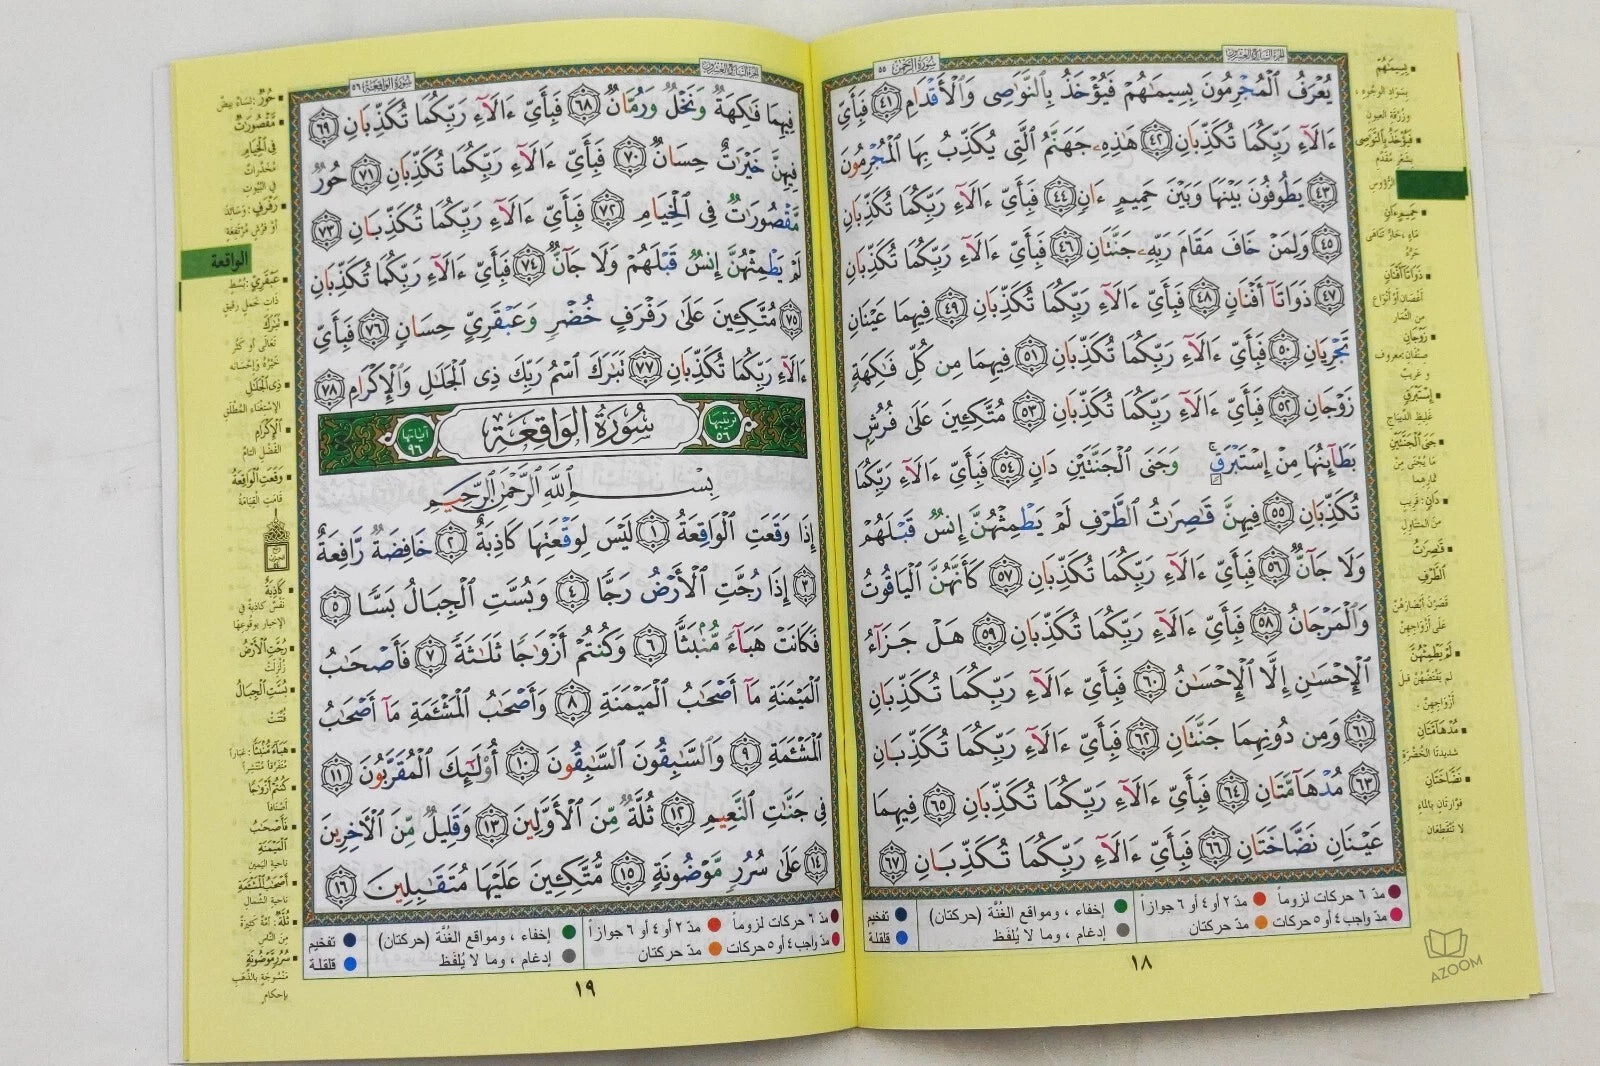 سورة الرحمن ٥٥
الجزء السابع والعشرون
يُعْرَفُ الْمُجْرِمُونَ بِسِيمَاهُمْ فَيُؤْخَذُ بِالنَّوَاصِي وَالْأَقْدَامِ ٤١ فَبِأَيِّ
ءَالَآءِ رَبِّكُمَا تُكَذِّبَانِ ٤٢ هَذِهِ جَهَنَّمُ الَّتِي يُكَذِّبُ بِهَا الْمُجْرِمُونَ
٤٣ يَطُوفُونَ بَيْنَهَا وَبَيْنَ حَمِيمٍ ءَانٍ ٤٤ فَبِأَيِّ ءَالَآءِ رَبِّكُمَا تُكَذِّبَانِ
٤٥ وَلِمَنْ خَافَ مَقَامَ رَبِّهِ جَنَّتَانِ ٤٦ فَبِأَيِّ ءَالَآءِ رَبِّكُمَا تُكَذِّبَانِ
٤٧ ذَوَاتَآ أَفْنَانٍ ٤٨ فَبِأَيِّ ءَالَآءِ رَبِّكُمَا تُكَذِّبَانِ ٤٩ فِيهِمَا عَيْنَانِ
تَجْرِيَانِ ٥٠ فَبِأَيِّ ءَالَآءِ رَبِّكُمَا تُكَذِّبَانِ ٥١ فِيهِمَا مِن كُلِّ فَكِهَةٍ
زَوْجَانِ ٥٢ فَبِأَيِّ ءَالَآءِ رَبِّكُمَا تُكَذِّبَانِ ٥٣ مُتَّكِئِينَ عَلَى فُرُشٍ
بَطَآئِنُهَا مِنْ إِسْتَبْرَقٍ وَجَنَى الْجَنَّتَيْنِ دَانٍ ٥٤ فَبِأَيِّ ءَالَآءِ رَبِّكُمَا
تُكَذِّبَانِ ٥٥ فِيهِنَّ قَاصِرَاتُ الطَّرْفِ لَمْ يَطْمِثْهُنَّ إِنسٌ قَبْلَهُمْ
وَلَا جَآنٌّ ٥٦ فَبِأَيِّ ءَالَآءِ رَبِّكُمَا تُكَذِّبَانِ ٥٧ كَأَنَّهُنَّ الْيَاقُوتُ
وَالْمَرْجَانُ ٥٨ فَبِأَيِّ ءَالَآءِ رَبِّكُمَا تُكَذِّبَانِ ٥٩ هَلْ جَزَآءُ
الْإِحْسَانِ إِلَّا الْإِحْسَانُ ٦٠ فَبِأَيِّ ءَالَآءِ رَبِّكُمَا تُكَذِّبَانِ
٦١ وَمِن دُونِهِمَا جَنَّتَانِ ٦٢ فَبِأَيِّ ءَالَآءِ رَبِّكُمَا تُكَذِّبَانِ
٦٣ مُدْهَآمَّتَانِ ٦٤ فَبِأَيِّ ءَالَآءِ رَبِّكُمَا تُكَذِّبَانِ ٦٥ فِيهِمَا
عَيْنَانِ نَضَّاخَتَانِ ٦٦ فَبِأَيِّ ءَالَآءِ رَبِّكُمَا تُكَذِّبَانِ ٦٧
بِسِيمَاهُمْ
بسواد الوجوه،
وزرقة العيون
فَيُؤْخَذُ بِالنَّوَاصِي
بشعر مقدّم
الرؤوس
حَمِيمٍ ءَانٍ
ماء حارّ تناهى
حرّه
ذَوَاتَآ أَفْنَانٍ
أغصان أو أنواع
من الثمار
زَوْجَانِ
صنفان: معروف
و غريب
إِسْتَبْرَقٍ
غليظ الديباج
جَنَى الْجَنَّتَيْنِ
ما يُجنى من
ثمارهما
دَانٍ: قريب
من المتناول
قَاصِرَاتُ
الطَّرْفِ
قصرن أبصارهنّ
على أزواجهنّ
لَمْ يَطْمِثْهُنَّ
لم يفتضّهنّ قبل
أزواجهنّ
مُدْهَآمَّتَانِ
شديدتا الخضرة
نَضَّاخَتَانِ
فوّارتان بالماء
لا تنقطعان
مدّ ٦ حركات لزوماً مدّ ٢ أو ٤ أو ٦ جوازاً
مدّ واجب ٤ أو ٥ حركات مدّ حركتان
إخفاء، ومواقع الغُنَّة (حركتان)
إدغام، وما لا يُلفَظ
تفخيم
قلقلة
١٨
AZOOM
الجزء السابع والعشرون
سورة الواقعة ٥٦
فِيهِمَا فَكِهَةٌ وَنَخْلٌ وَرُمَّانٌ ٦٨ فَبِأَيِّ ءَالَآءِ رَبِّكُمَا تُكَذِّبَانِ ٦٩
فِيهِنَّ خَيْرَاتٌ حِسَانٌ ٧٠ فَبِأَيِّ ءَالَآءِ رَبِّكُمَا تُكَذِّبَانِ ٧١ حُورٌ
مَّقْصُورَاتٌ فِي الْخِيَامِ ٧٢ فَبِأَيِّ ءَالَآءِ رَبِّكُمَا تُكَذِّبَانِ ٧٣
لَمْ يَطْمِثْهُنَّ إِنسٌ قَبْلَهُمْ وَلَا جَآنٌّ ٧٤ فَبِأَيِّ ءَالَآءِ رَبِّكُمَا تُكَذِّبَانِ
٧٥ مُتَّكِئِينَ عَلَى رَفْرَفٍ خُضْرٍ وَعَبْقَرِيٍّ حِسَانٍ ٧٦ فَبِأَيِّ
ءَالَآءِ رَبِّكُمَا تُكَذِّبَانِ ٧٧ تَبَرَكَ اسْمُ رَبِّكَ ذِي الْجَلَلِ وَالْإِكْرَامِ ٧٨
ترتيبها ٥٦ سُورَةُ الْوَاقِعَةِ آياتها ٩٦
بِسْمِ اللَّهِ الرَّحْمَنِ الرَّحِيمِ
إِذَا وَقَعَتِ الْوَاقِعَةُ ١ لَيْسَ لِوَقْعَتِهَا كَاذِبَةٌ ٢ خَافِضَةٌ رَّافِعَةٌ
٣ إِذَا رُجَّتِ الْأَرْضُ رَجًّا ٤ وَبُسَّتِ الْجِبَالُ بَسًّا ٥
فَكَانَتْ هَبَآءً مُّنْبَثًّا ٦ وَكُنتُمْ أَزْوَاجًا ثَلَاثَةً ٧ فَأَصْحَابُ
الْمَيْمَنَةِ مَآ أَصْحَابُ الْمَيْمَنَةِ ٨ وَأَصْحَابُ الْمَشْئَمَةِ مَآ أَصْحَابُ
الْمَشْئَمَةِ ٩ وَالسَّابِقُونَ السَّابِقُونَ ١٠ أُوْلَئِكَ الْمُقَرَّبُونَ ١١
فِي جَنَّاتِ النَّعِيمِ ١٢ ثُلَّةٌ مِّنَ الْأَوَّلِينَ ١٣ وَقَلِيلٌ مِّنَ الْآخِرِينَ
١٤ عَلَى سُرُرٍ مَّوْضُونَةٍ ١٥ مُّتَّكِئِينَ عَلَيْهَا مُتَقَابِلِينَ ١٦
حُورٌ: نساء بيض
مَّقْصُورَاتٌ
فِي الْخِيَامِ
مخدّرات
في البيوت
رَفْرَفٍ: وسائد
أو فرش مرتفعة
الواقعة
عَبْقَرِيٍّ: بُسُط
ذات خمل رقيق
تَبَرَكَ
تعالى أو كثر
خيره وإحسانه
ذِي الْجَلَلِ
الاستغناء المطلق
الْإِكْرَامِ
الفضل التام
وَقَعَتِ الْوَاقِعَةُ
قامت القيامة
كَاذِبَةٌ
نفس كاذبة في
الإخبار بوقوعها
رُجَّتِ الْأَرْضُ
زُلزلت
بُسَّتِ الْجِبَالُ
فُتّتت
هَبَآءً مُّنْبَثًّا: غباراً
متفرقاً منتشراً
كُنتُمْ أَزْوَاجًا
أصنافاً
فَأَصْحَابُ
الْمَيْمَنَةِ
ناحية اليمين
أَصْحَابُ الْمَشْئَمَةِ
ناحية الشمال
ثُلَّةٌ: أمّة كثيرة
من الناس
سُرُرٍ مَّوْضُونَةٍ
منسوجة بالذهب
بإحكام
مدّ ٦ حركات لزوماً مدّ ٢ أو ٤ أو ٦ جوازاً
مدّ واجب ٤ أو ٥ حركات مدّ حركتان
إخفاء، ومواقع الغُنَّة (حركتان)
إدغام، وما لا يُلفَظ
تفخيم
قلقلة
١٩